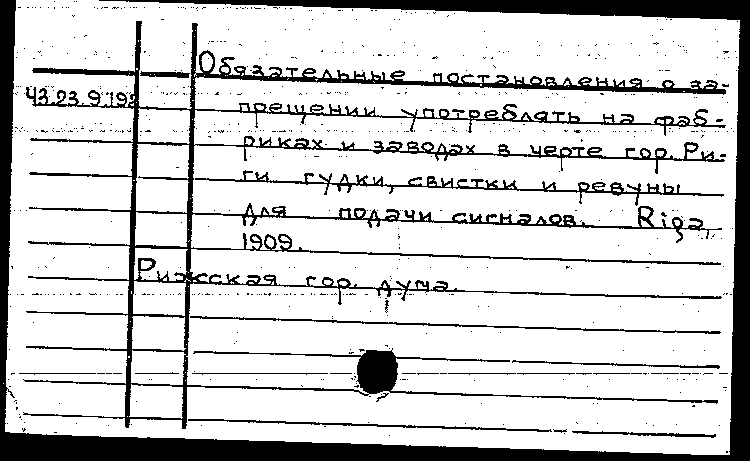 Обязательные постановления о за-
43.23.9.192 прещении употреблять на фаб-
риках и заводах в черте гор. Ри-
ги гудки, свистки и ревуны
для подачи сигналов. Riga,
1909.
Рижская гор. дума.